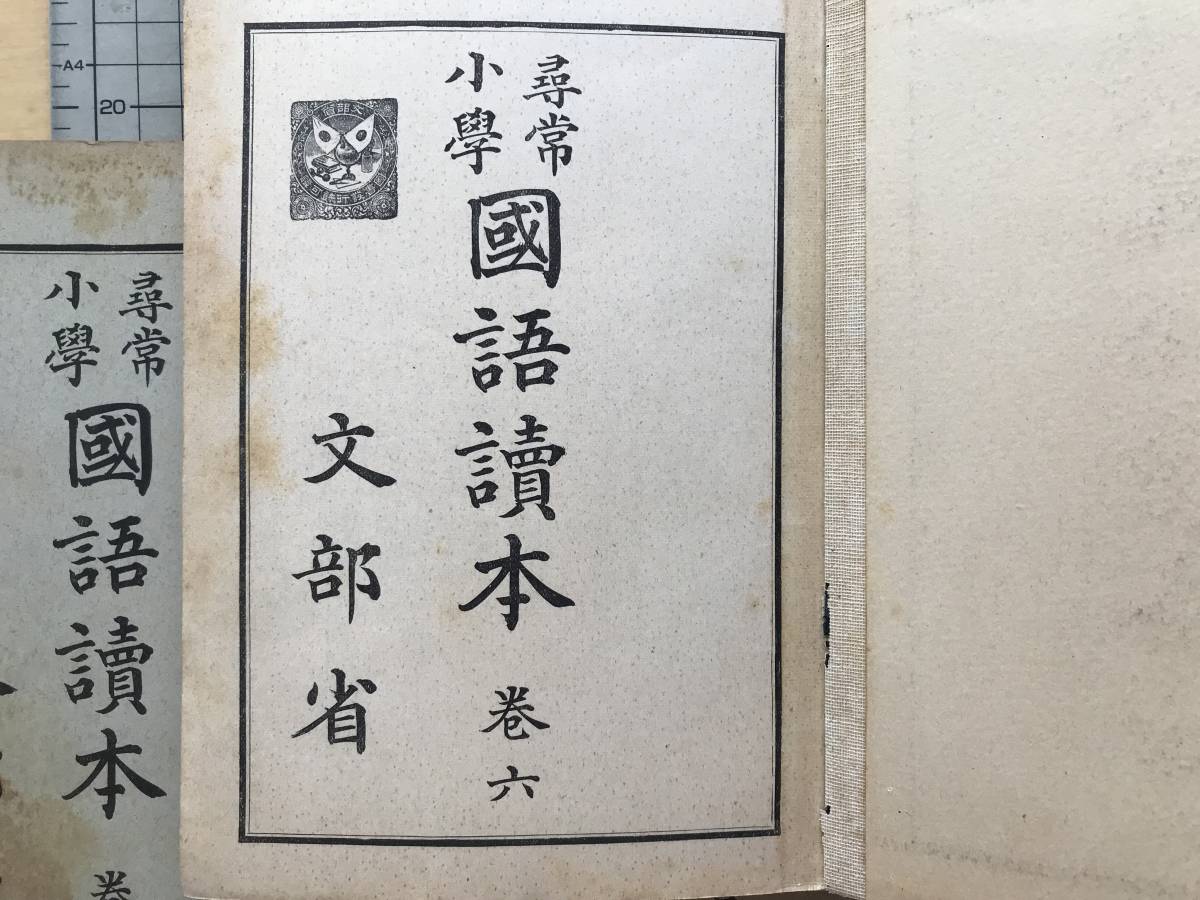 尋常
小學
國語讀本 卷六
文部省
尋常
小學
國語讀本 卷
A4
20